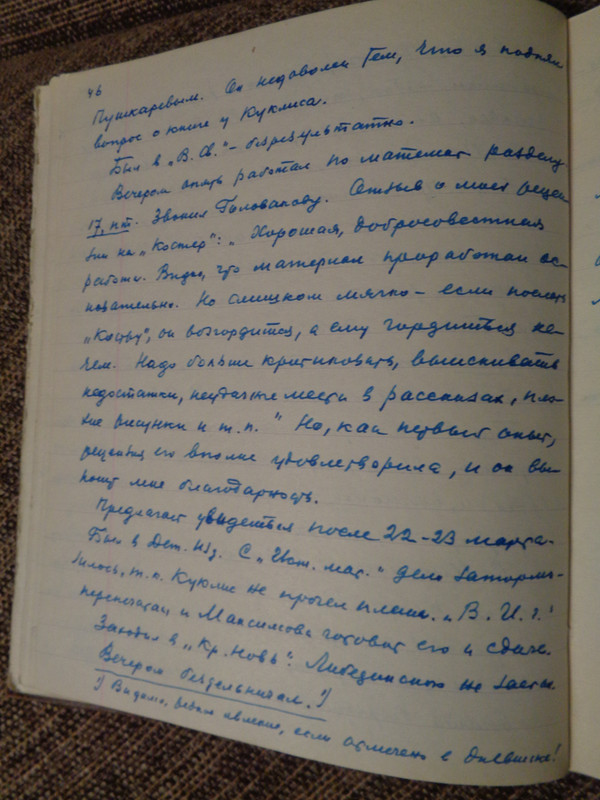 46
Пушкаревым. Он недоволен тем, что я поднял
вопрос о книге у Куклиса.
Был в „В. Св." – безрезультатно.
Вечером опять работал по математ разделу
17, пт. Звонил Голованову. Отзыв о моей рецен
зии на „Костер": „Хорошая, добросовестная
работа. Видно, что материал проработан ос-
новательно. Но слишком мягко – если послать
„Костру", он возгордится, а ему гордиться не-
чем. Надо больше критиковать, выискивать
недостатки, неудачные места в рассказах, пло-
хие рисунки и т.п." Но, как первый опыт,
рецензия его вполне удовлетворила, и он вы-
пишет мне благодарность.
Предлагает увидеться после 22-23 марта.
Был в Дет. Изд. С „Ист. мат." дело затормо-
зилось, т.к. Куклис не прочел план. „В. И. г."
перепечатан и Максимова готовит его к сдаче.
Заходил в „Кр. Новь". Либединского не застал.
Вечером бездельничал. 1)
1) Видимо, редкое явление, если отмечено в дневнике!